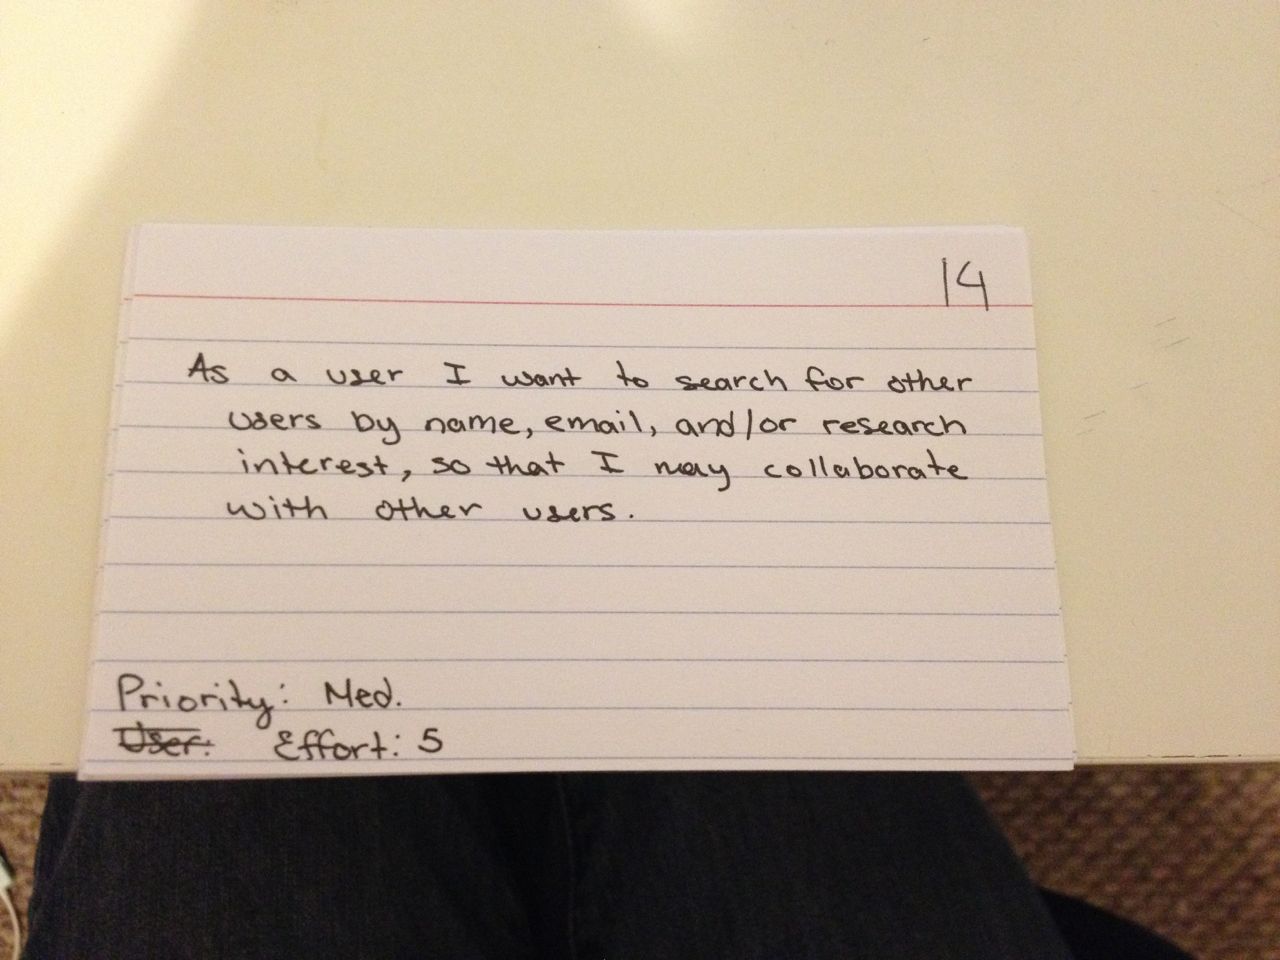 14
As a user I want to search for other
users by name, email, and/or research
interest, so that I may collaborate
with other users.
Priority: Med.
User: Effort: 5